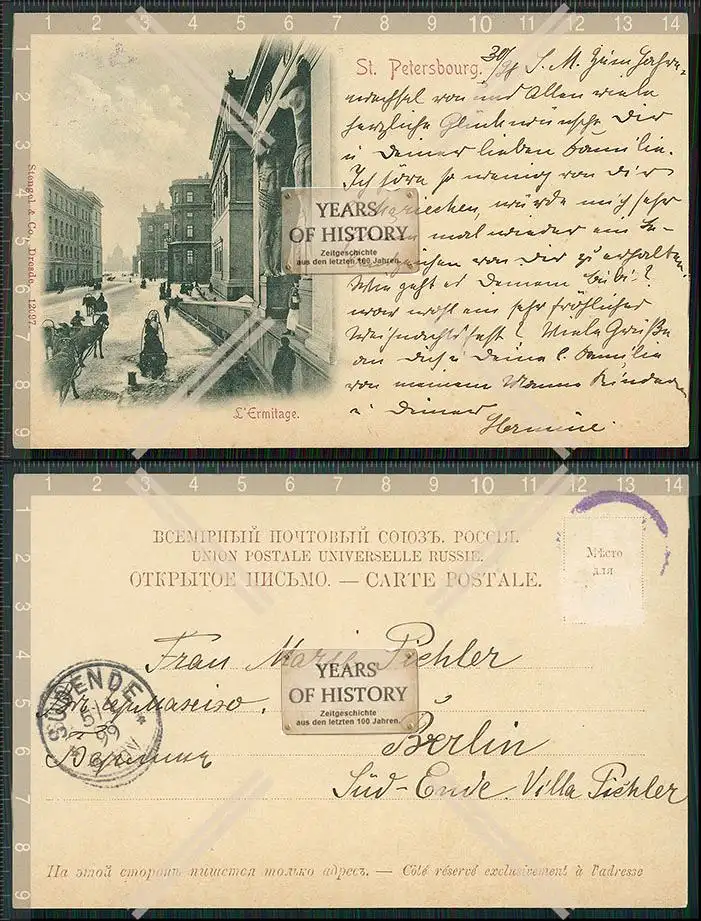 1 2 3 4 5 6 7 8 9 10 11 12 13 14
St. Petersbourg. 30/
S. M. Zum Jahres-
wechsel von uns Allen viele
herzliche Glückwünsche Dir
u Deiner lieben Familie.
Ich höre so wenig von Dir
Mariechen, würde mich sehr
mal wieder ein Le-
benszeichen von Dir zu erhalten.
Wie geht es Deinem Bubi?
war wohl ein sehr fröhliches
Weihnachtsfest? Viele Grüße
an Dich u Deine l. Familie
von meinem Manne Kindern
u Deiner
Hermine.
Stengel & Co., Dresde, 12097.
L'Ermitage.
YEARS
OF HISTORY
Zeitgeschichte
aus den letzten 100 Jahren.
1 2 3 4 5 6 7 8 9 10 11 12 13 14
ВСЕМІРНЫЙ ПОЧТОВЫЙ СОЮЗЪ. РОССІЯ.
UNION POSTALE UNIVERSELLE RUSSIE.
ОТКРЫТОЕ ПИСЬМО. — CARTE POSTALE.
Мѣсто
для
Frau Marie Pichler
Германію.
Берлинъ
Berlin
Süd-Ende. Villa Pichler
SÜDENDE
99
YEARS
OF HISTORY
Zeitgeschichte
aus den letzten 100 Jahren.
На этой сторонѣ пишется только адресъ. — Côté réservé exclusivement à l'adresse